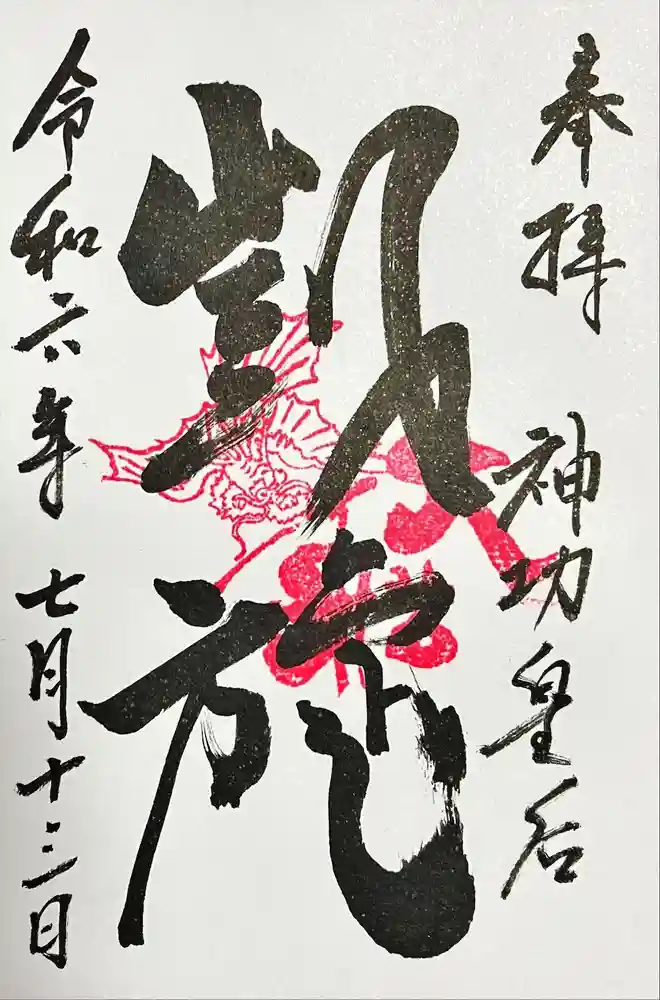 奉拝 神功皇后
凱旋
令和六年 七月十三日